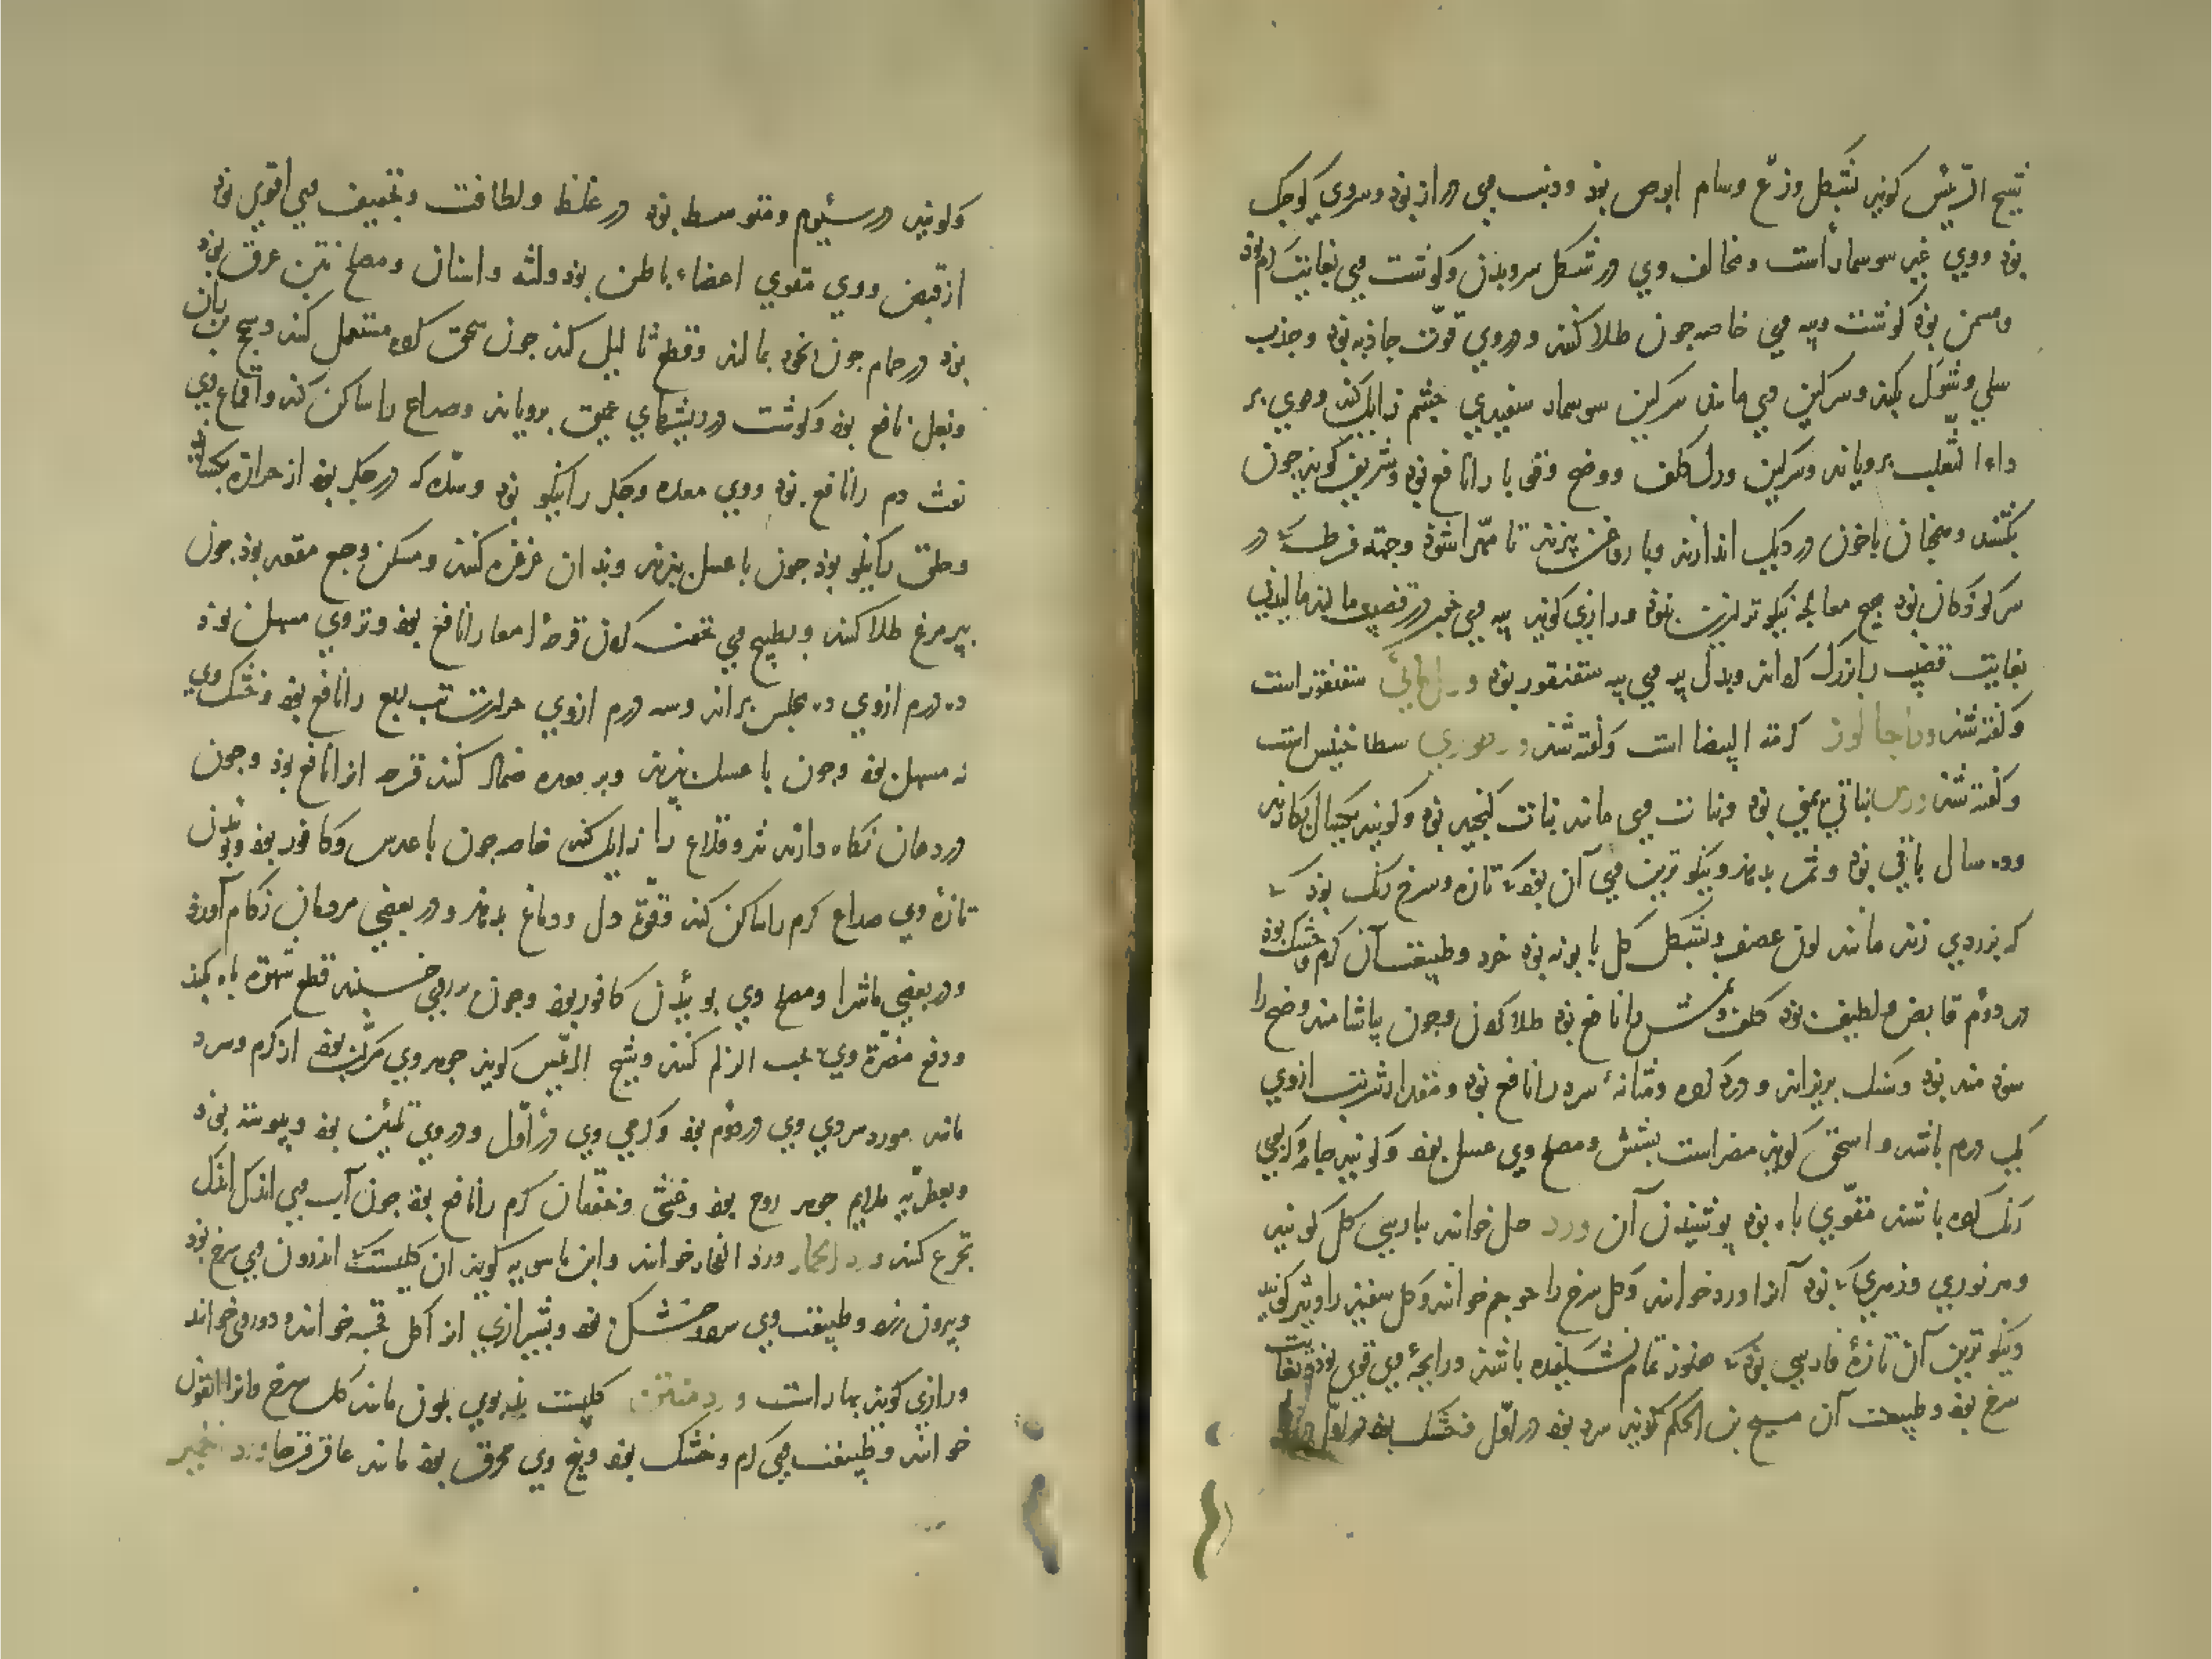 شیخ الرئیس کویند بشکل وزغ وسام ابرص بوذ وذنب وی دراز بوذ وسروی کوجک
بوذ ووی غیر سوسمار است ومخالف وی در شکل سر وبدن وکوشت وی بغایت کرم بوذ
ومسمن بوذ کوشت وپیه وی خاصه جون طلا کنند ودر وی قوّت جاذبه بوذ وجذب
سلی وشوک بکند وسرکین وی مانند سرکین سوسمار سفیدی جشم زایل کند وموی بر
داء الثعلب برویاند وسرکین ورل کلف ووضح وقوبا را نافع بوذ وشریف کویند جون
بکشند وهمجنان باخون در دیک اندازند وبا روغن پزند تا مهرّا شوذ وجهة قرطسه در
سر کوذکان بوذ هیج معالجه نیکوتر ازین نبوذ ورازی کویند پیه وی جون در قضیب مالند مالیدنی
بغایت قضیب را بزرک کرداند وبدل پیه وی پیه سقنقور بوذ ورل مائی سقنقور است
وکفته شذ وراجالوز کرمة البیضا است وکفته شذ وردوری سطاخینس است
وکفته شذ ورس نباتی یمنی بوذ ونبات وی مانند نبات کنجید بوذ وکویند یکسال بکارند
وده سال باقی بوذ وثمر بدهد ونیکوترین وی آن بوذ که تازه وسرخ رنک بوذ
که بزردی زند مانند لون عصفر وبشکل کل بابونه بوذ خرد وطبیعت آن کرم وخشک بوذ
در دوّم قابض ولطیف بوذ کلف ونمش را نافع بوذ طلا کردن وجون بیاشامند وضح را
سوذمند بوذ وسنک بریزاند ودرد کرده ومثانهٔ سرد را نافع بوذ ومقدار شربت ازوی
یک درم باشد واسحق کویند مضر است بشش ومصلح وی عسل بوذ وکویند جامه که بوی
رنک کرده باشند مقوّی باه بوذ پوشیدن آن ورد جل خوانند بپارسی کل کویند
وهر نوری وزهری که بوذ آنرا ورد خوانند وکل سرخ را حوجم خوانند وکل سفید را وتیر کویند
ونیکوترین آن تازهٔ فارسی بوذ که هنوز تمام نشکفیده باشد ورایحهٔ وی قوی بوذ وبغایت
سرخ بوذ وطبیعت آن مسیح بن الحکم کویند سرد بوذ در اوّل وخشک بوذ در اوّل
وکویند در سیّوم ومتوسط بوذ در غلظ ولطافت وتجفیف وی اقوی بوذ
از قبض ووی مقوی اعضاء باطن بوذ ولثه واسنان ومصلح نتن عرق بوذ
بوذ در حمام جون بخود بمالند وقطع ثالیل کند جون سحق کرده مستعمل کنند وسحج بن ران
وبغل نافع بوذ وکوشت در ریشهای عمیق برویاند وصداع را ساکن کند واقماع وی
نفث دم را نافع بوذ ووی معده وجکر را نیکو بوذ وسدّه که در جکر بوذ از حرارة بکشاید
وحلق را نیکو بوذ جون با عسل بپزند وبدان غرغره کنند ومسکن وجع مقعد بوذ جون
بپر مرغ طلا کنند وبطبیخ وی حقنه کردن قرحهٔ امعا را نافع بوذ وتری وی مسهل بوذ
ده درم ازوی ده مجلس براند وسه درم ازوی حرارت تب ربع را نافع بوذ وخشک وی
نه مسهل بوذ وجون با عسل بپزند وبر معده ضماد کنند قرحه انرا نافع بوذ وجون
در دهان نکاه دارند بثر وقلاع را زایل کند خاصه جون با عدس وکافور بوذ وبوئیدن
تازهٔ وی صداع کرم را ساکن کند وقوّة دل ودماغ بدهد ودر بعضی مردمان زکام آورد
ودر بعضی ماشرا ومصلح وی بوئیدن کافور بوذ وجون بر وی خسپند قطع شهوة باه بکند
ودفع مضرّة وی بحب الزلم کنند وشیخ الرئیس کویند جوهر وی مرکّب بوذ از کرم وسرد
مانند مورد سردی وی در دوّم بوذ وکرمی وی در اوّل ودر وی تلیین بوذ وپیوسته بوذ
وبعطریة ملایم جوهر روح بوذ وغشی وخفقان کرم را نافع بوذ جون آب وی اندک اندک
تجرع کنند ورد الحمار ورد الفجار خوانند وابن ماسویه کویند ان کلیست که اندرون وی سرخ بوذ
وبیرون زرد وطبیعت وی سرد وخشک بوذ وبشیرازی انرا کل قحبه خوانند ودوروی خوانند
ورازی کویند بهار است ورد منتن کلیست بدبوی بلون مانند کل سرخ وانرا القول
خوانند وطبیعت وی کرم وخشک بوذ وبیخ وی محرق بوذ مانند عاقرقرحا ورد